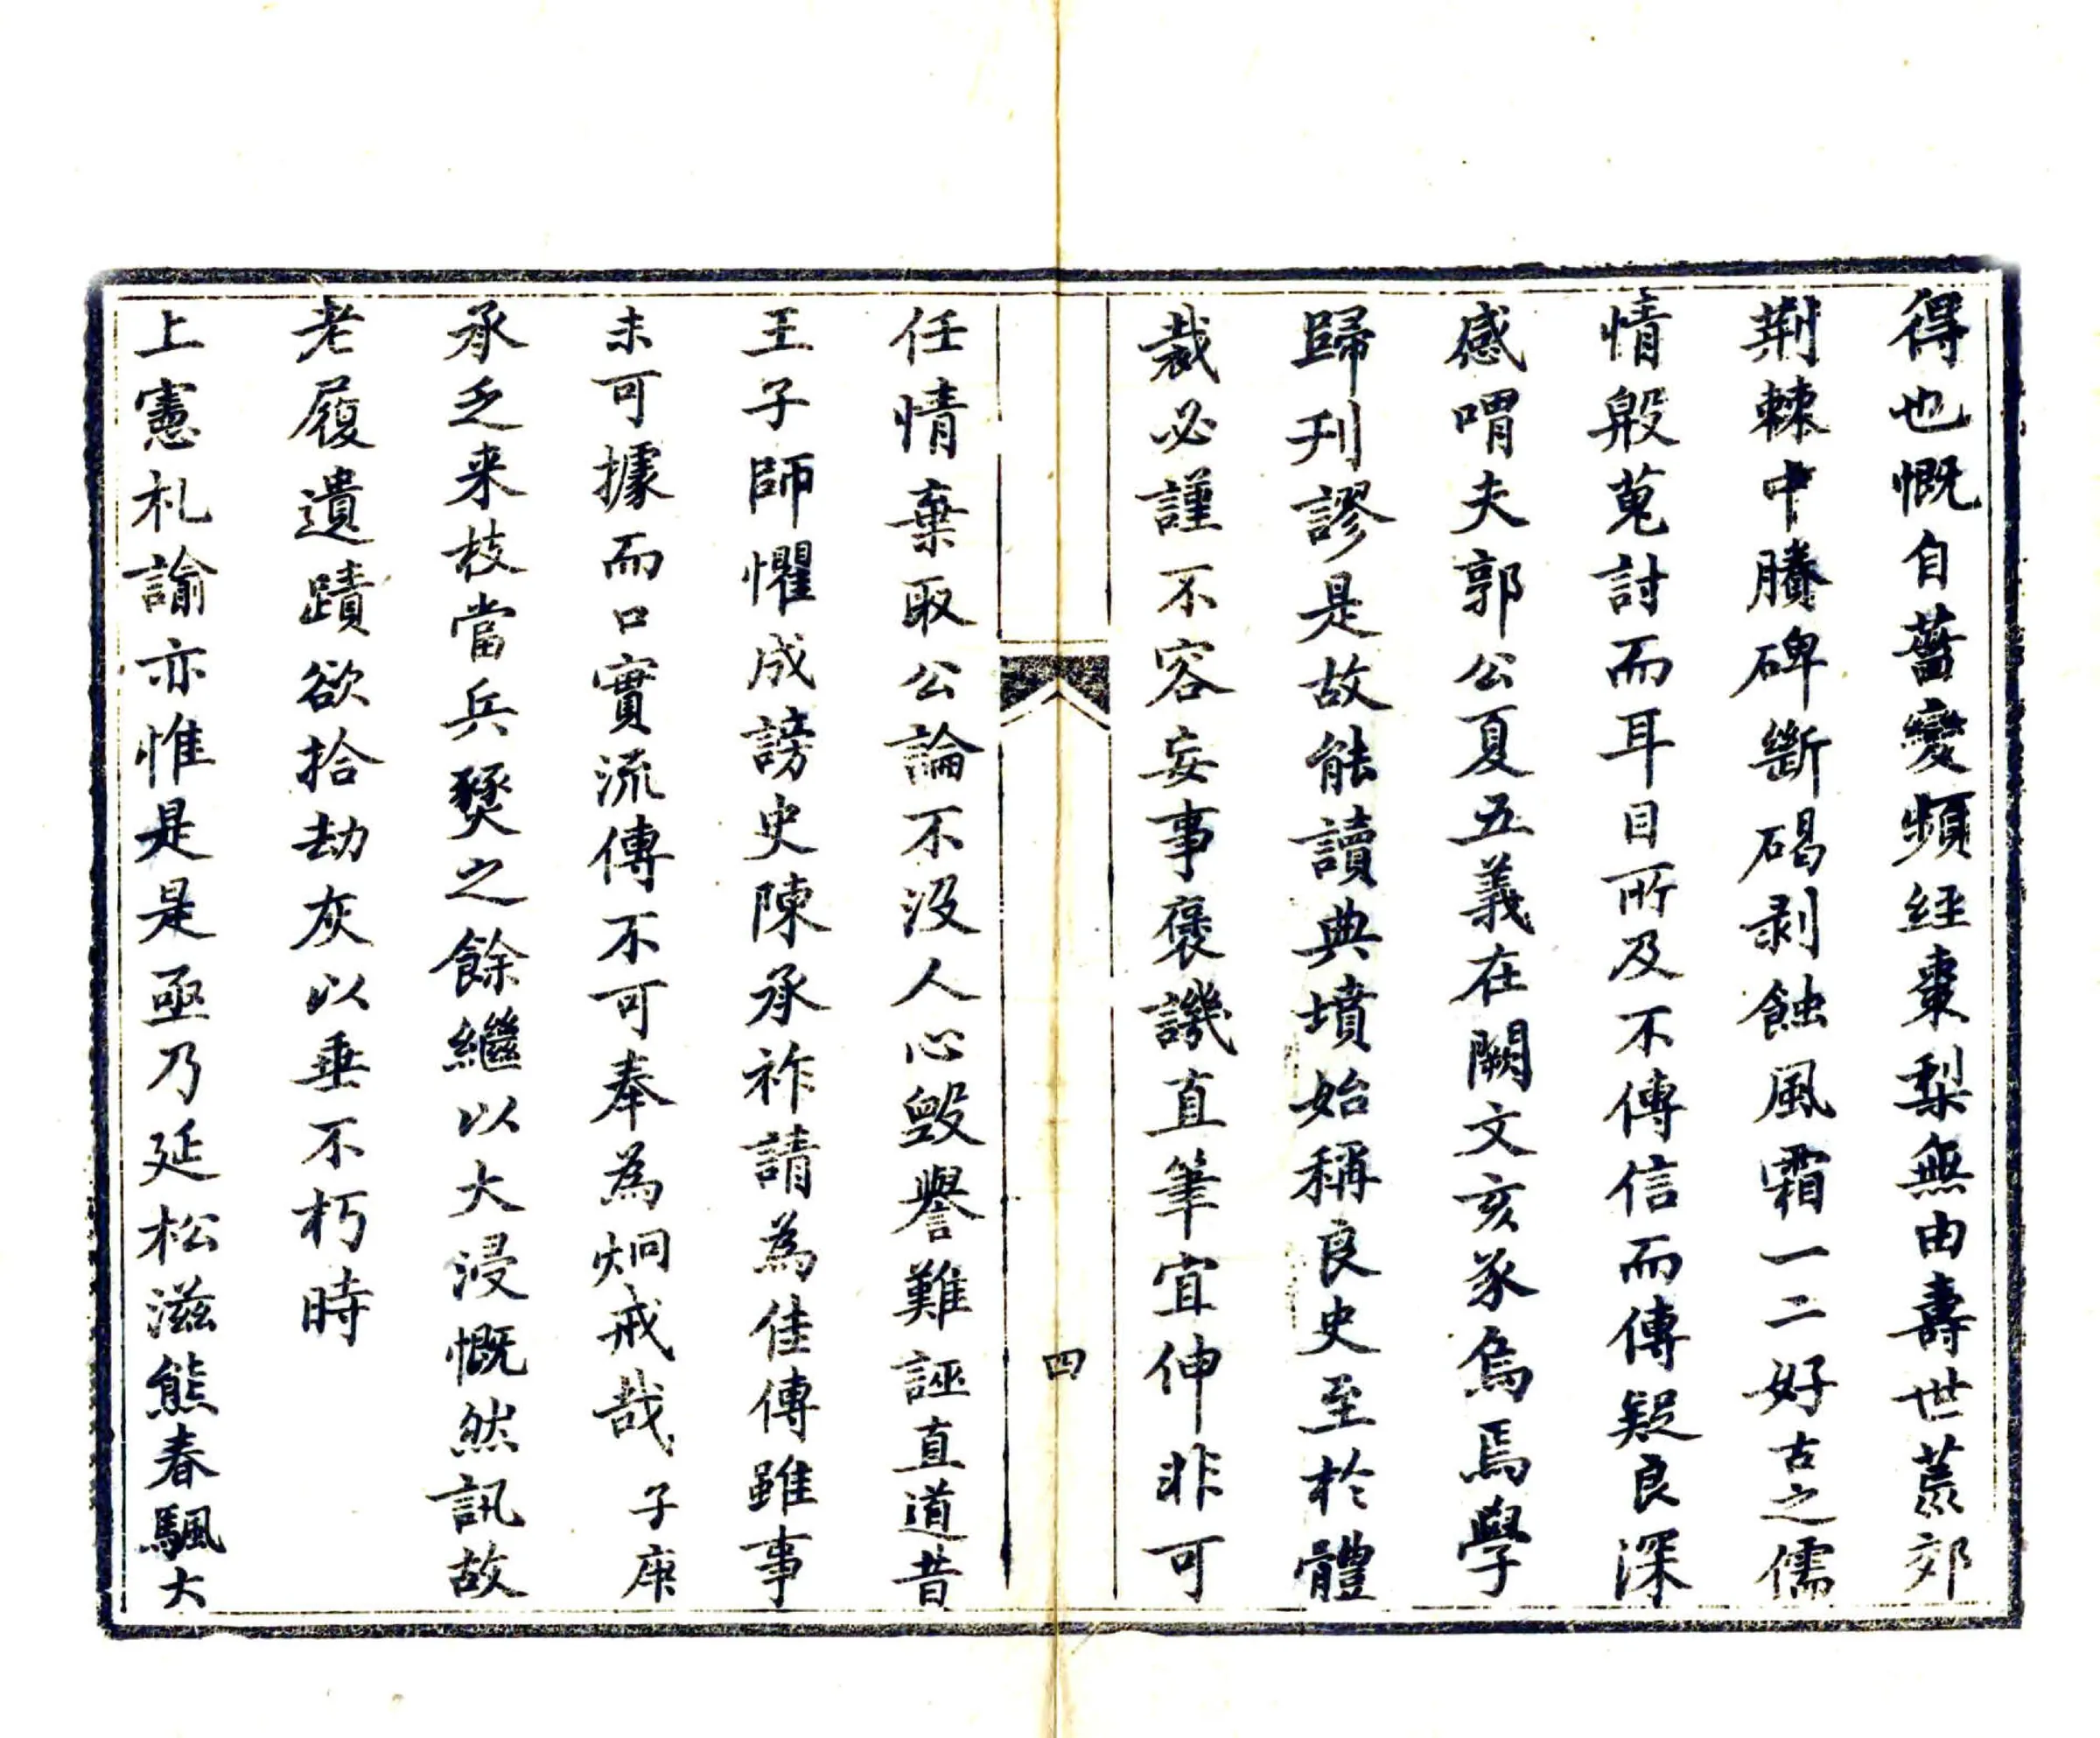 得也慨自蔷變頻經棗梨無由壽世荒郊
荆棘中賸碑斷碣剥蝕風霜一二好古之儒
情殷蒐討而耳目所及不傳信而傳疑良深
感喟夫郭公夏五義在闕文亥豕烏焉學
歸刊謬是故能讀典墳始稱良史至於體
裁必謹不容妄事褒譏直筆宜伸非可
四
任情棄取公論不没人心毀譽難誣直道昔
王子師懼成謗史陳承祚請為佳傳雖事
未可據而口實流傳不可奉為炯戒哉子庚
承乏来枝當兵燹之餘繼以大浸慨然訊故
老履遺蹟欲拾劫灰以垂不朽時
上憲札諭亦惟是是亟乃延松滋熊春颿大